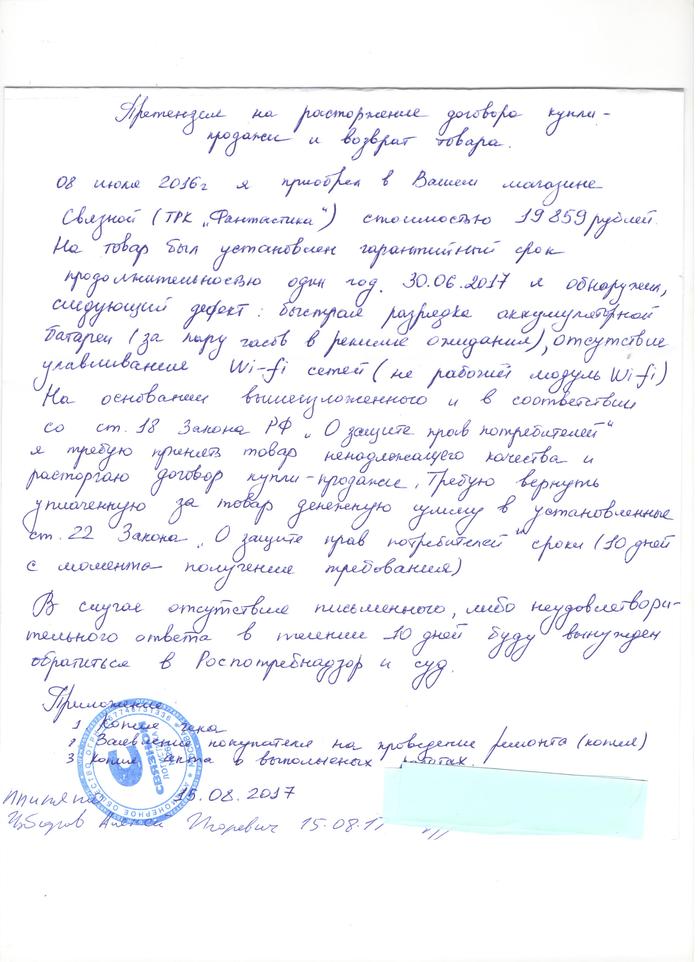 Претензия на расторжение договора купли-
продажи и возврат товара.
08 июля 2016г я приобрел в Вашем магазине
Связной (ТРК „Фантастика") стоимостью 19 859 рублей.
На товар был установлен гарантийный срок
продолжительностью один год. 30.06.2017 я обнаружил,
следующий дефект: быстрая разрядка аккумуляторной
батареи (за пару часов в режиме ожидания), отсутствие
улавливания Wi-fi сетей (не рабочий модуль Wi-fi)
На основании вышеизложенного и в соответствии
со ст. 18 Закона РФ „О защите прав потребителей"
я требую принять товар ненадлежащего качества и
расторгаю договор купли-продажи. Требую вернуть
уплаченную за товар денежную сумму в установленные
ст. 22 Закона „О защите прав потребителей" сроки (10 дней
с момента получения требования)
В случае отсутствия письменного, либо неудовлетвори-
тельного ответа в течении 10 дней буду вынужден
обратиться в Роспотребнадзор и суд.
Приложение
1 Копия чека
2 Заявление покупателя на проведение ремонта (копия)
3 Копия акта о выполненых работах.
15.08.2017
Игоревич 15.08.17
СВЯЗНОЙ
ЛОГИСТИКА
МОСКВА
АКЦИОНЕРНОЕ ОБЩЕСТВО